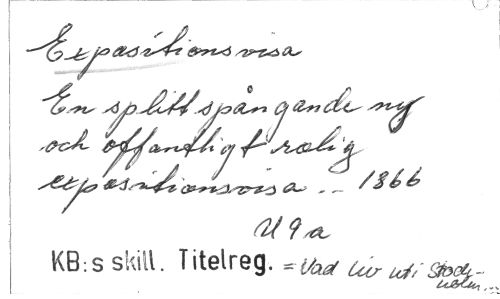 Expositionsvisa
En splittspångande ny
och offantligt rolig
expositionsvisa .. 1866
U 9 a
KB:s skill. Titelreg. = Vad liv uti Stock-
holm...